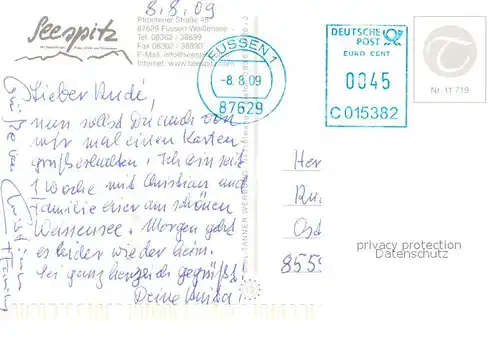 8.8.09
Seespitz
Pfrontener Straße 45
87629 Füssen-Weißensee
Tel. 08362 / 38899
Fax 08362 / 38890
E-Mail: info@seespitz.com
Internet: www.seespitz.com
FÜSSEN 1
-8.8.09
87629
DEUTSCHE
POST
EURO CENT
0045
C015382
Nr. 11 719
Lieber Rudi,
nun sollst Du auch von
mir mal einen Karten
gruß erhalten. Ich bin seit
1 Woche mit Christian und
Familie hier am schönen
Weissensee. Morgen geht
es leider wieder heim.
Sei ganz herzlich gegrüßt!
Deine
Grüße von
TANNER WERBUNG
Her
Ru
855
privacy protection
Datenschutz